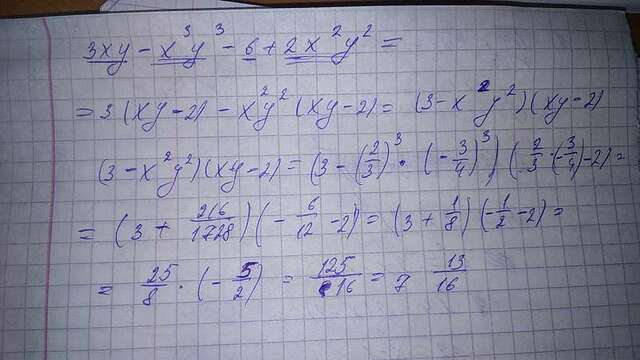 3xy - x³y³ - 6 + 2x²y² =
= 3(xy-2) - x²y²(xy-2) = (3-x²y²)(xy-2)
(3-x²y²)(xy-2) = (3-(2/3)³·(-3/4)³)(2/3·(-3/4)-2) =
= (3 + 216/1728)(-6/12 - 2) = (3 + 1/8)(-1/2 - 2) =
= 25/8 · (-5/2) = 125/16 = 7 13/16